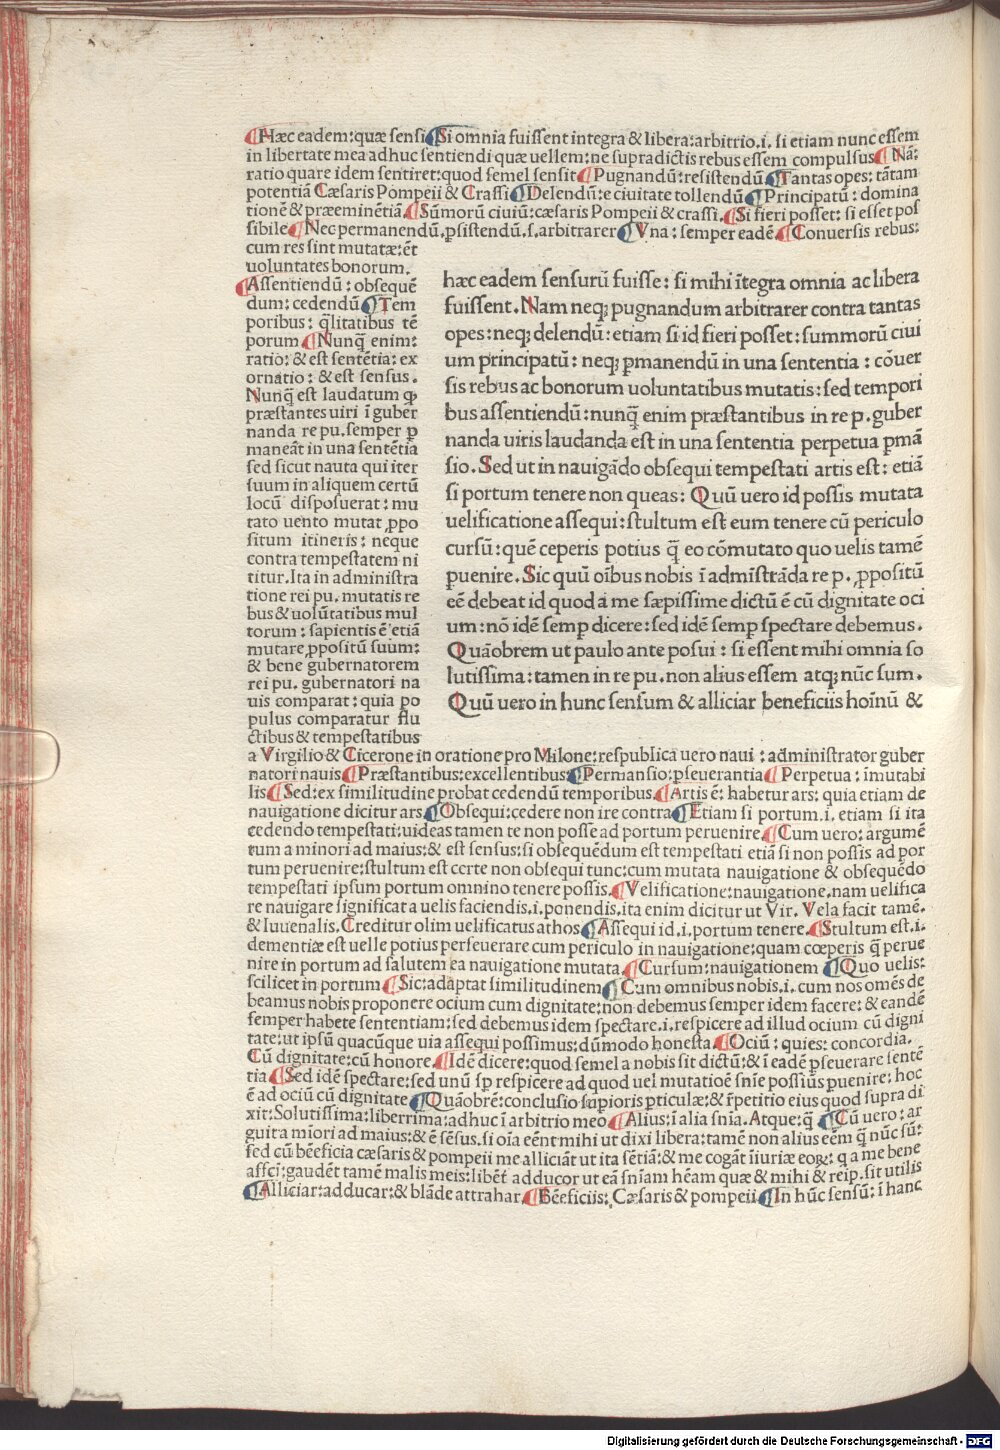 ¶Hæc eadem: quæ sensi¶Si omnia fuissent integra & libera: arbitrio .i. si etiam nunc essem
in libertate mea adhuc sentiendi quæ uellem: ne supradictis rebus essem compulsus¶Nã:
ratio quare idem sentiret: quod semel sensit¶Pugnandũ: resistendũ¶Tantas opes: tãtam
potentiã Cæsaris Pompeii & Crassi¶Delendũ: e ciuitate tollendũ¶Principatũ: domina
tionẽ & præeminẽtiã¶Sũmorũ ciuiũ: cæsaris Pompeii & crassi.¶Si fieri posset: si esset pos
sibile¶Nec permanendũ. ꝑsistendũ .s. arbitrarer¶Vna: semper eadẽ¶Conuersis rebus:
cum res sint mutatæ: ẽt
uoluntates bonorum.
¶Assentiendũ: obsequẽ
dum: cedendũ¶Tem
poribus: q̃litatibus tẽ
porum¶Nunq̃ enim:
ratio: & est sentẽtia: ex
ornatio: & est sensus.
Nunq̃ est laudatum ꝙ
præstantes uiri ĩ guber
nanda re pu. semper ꝑ
maneãt in una sentẽtia
sed sicut nauta qui iter
suum in aliquem certũ
locũ disposuerat: mu
tato uento mutat ꝓpo
situm itineris: neque
contra tempestatem ni
titur. Ita in administra
tione rei pu. mutatis re
bus & uolũtatibus mul
torum: sapientis ẽ etiã
mutare ꝓpositũ suum:
& bene gubernatorem
rei pu. gubernatori na
uis comparat: quia po
pulus comparatur flu
ctibus & tempestatibus
hæc eadem sensurũ fuisse: si mihi ĩtegra omnia ac libera
fuissent. Nam neqꝫ pugnandum arbitrarer contra tantas
opes: neqꝫ delendũ: etiam si id fieri posset: summorũ ciui
um principatũ: neqꝫ ꝑmanendũ in una sententia: cõuer
sis rebus ac bonorum uoluntatibus mutatis: sed tempori
bus assentiendũ: nunq̃ enim præstantibus in re p. guber
nanda uiris laudanda est in una sententia perpetua ꝑmã
sio. Sed ut in nauigãdo obsequi tempestati artis est: etiã
si portum tenere non queas: Quũ uero id possis mutata
uelificatione assequi: stultum est eum tenere cũ periculo
cursũ: quẽ ceperis potius q̃ eo cõmutato quo uelis tamẽ
ꝑuenire. Sic quũ oĩbus nobis ĩ admĩstrãda re p. ꝓpositũ
eẽ debeat id quod a me sæpissime dictũ ẽ cũ dignitate oci
um: nõ idẽ semꝑ dicere: sed idẽ semꝑ spectare debemus.
Quãobrem ut paulo ante posui: si essent mihi omnia so
lutissima: tamen in re pu. non alius essem atqꝫ nũc sum.
Quũ uero in hunc sensum & alliciar beneficiis hoĩnũ &
a Virgilio & Cicerone in oratione pro Milone: respublica uero naui: administrator guber
natori nauis¶Præstantibus: excellentibus¶Permansio: ꝑseuerantia¶Perpetua: ĩmutabi
lis¶Sed: ex similitudine probat cedendũ temporibus.¶Artis ẽ: habetur ars: quia etiam de
nauigatione dicitur ars¶Obsequi: cedere non ire contra¶Etiam si portum .i. etiam si ita
cedendo tempestati: uideas tamen te non posse ad portum peruenire¶Cum uero: argumẽ
tum a minori ad maius: & est sensus: si obsequẽdum est tempestati etiã si non possis ad por
tum peruenire: stultum est certe non obsequi tunc: cum mutata nauigatione & obsequẽdo
tempestati ipsum portum omnino tenere possis.¶Velificatione: nauigatione. nam uelifica
re nauigare significat a uelis faciendis .i. ponendis. ita enim dicitur ut Vir. Vela facit tamẽ.
& Iuuenalis. Creditur olim uelificatus athos¶Assequi id .i. portum tenere.¶Stultum est .i.
dementiæ est uelle potius perseuerare cum periculo in nauigatione: quam cœperis q̃ perue
nire in portum ad salutem ea nauigatione mutata¶Cursum: nauigationem¶Quo uelis:
scilicet in portum¶Sic: adaptat similitudinem¶Cum omnibus nobis .i. cum nos omẽs de
beamus nobis proponere ocium cum dignitate: non debemus semper idem facere: & eandẽ
semper habete sententiam: sed debemus idem spectare .i. respicere ad illud ocium cũ digni
tate: ut ipsũ quacũque uia assequi possimus: dũmodo honesta¶Ociũ: quies: concordia.
Cũ dignitate: cũ honore¶Idẽ dicere: quod semel a nobis sit dictũ: & ĩ eadẽ ꝑseuerare sentẽ
tia¶Sed idẽ spectare: sed unũ sꝑ respicere ad quod uel mutatioẽ snĩe possiũs ꝑuenire: hoc
ẽ ad ociũ cũ dignitate¶Quãobrẽ: conclusio suꝑioris ꝑticulæ: & ĩpetitio eius quod supra di
xit: Solutissima: liberrima: adhuc ĩ arbitrio meo¶Alius: ĩ alia snĩa. Atque: q̃¶Cũ uero: ar
guit a mĩori ad maius: & ẽ sẽsus. si oĩa eẽnt mihi ut dixi libera: tamẽ non alius eẽm q̃ nũc sũ:
sed cũ bẽeficia cæsaris & pompeii me alliciãt ut ita sẽtiã: & me cogãt ĩiuriæ eoꝝ: q a me bene
affci: gaudẽt tamẽ malis meis: libẽt adducor ut eã snĩam hẽam quæ & mihi & reip. sit utilis
¶Alliciar: adducar: & blãde attrahar¶Bẽeficiis: Cæsaris & pompeii¶In hũc sensũ: ĩ hanc
Digitalisierung gefördert durch die Deutsche Forschungsgemeinschaft - DFG